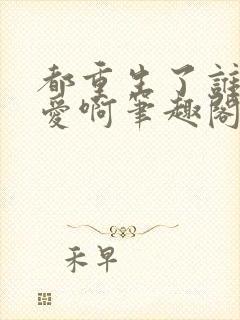 都重生了誰
愛啊筆趣閣
禾早